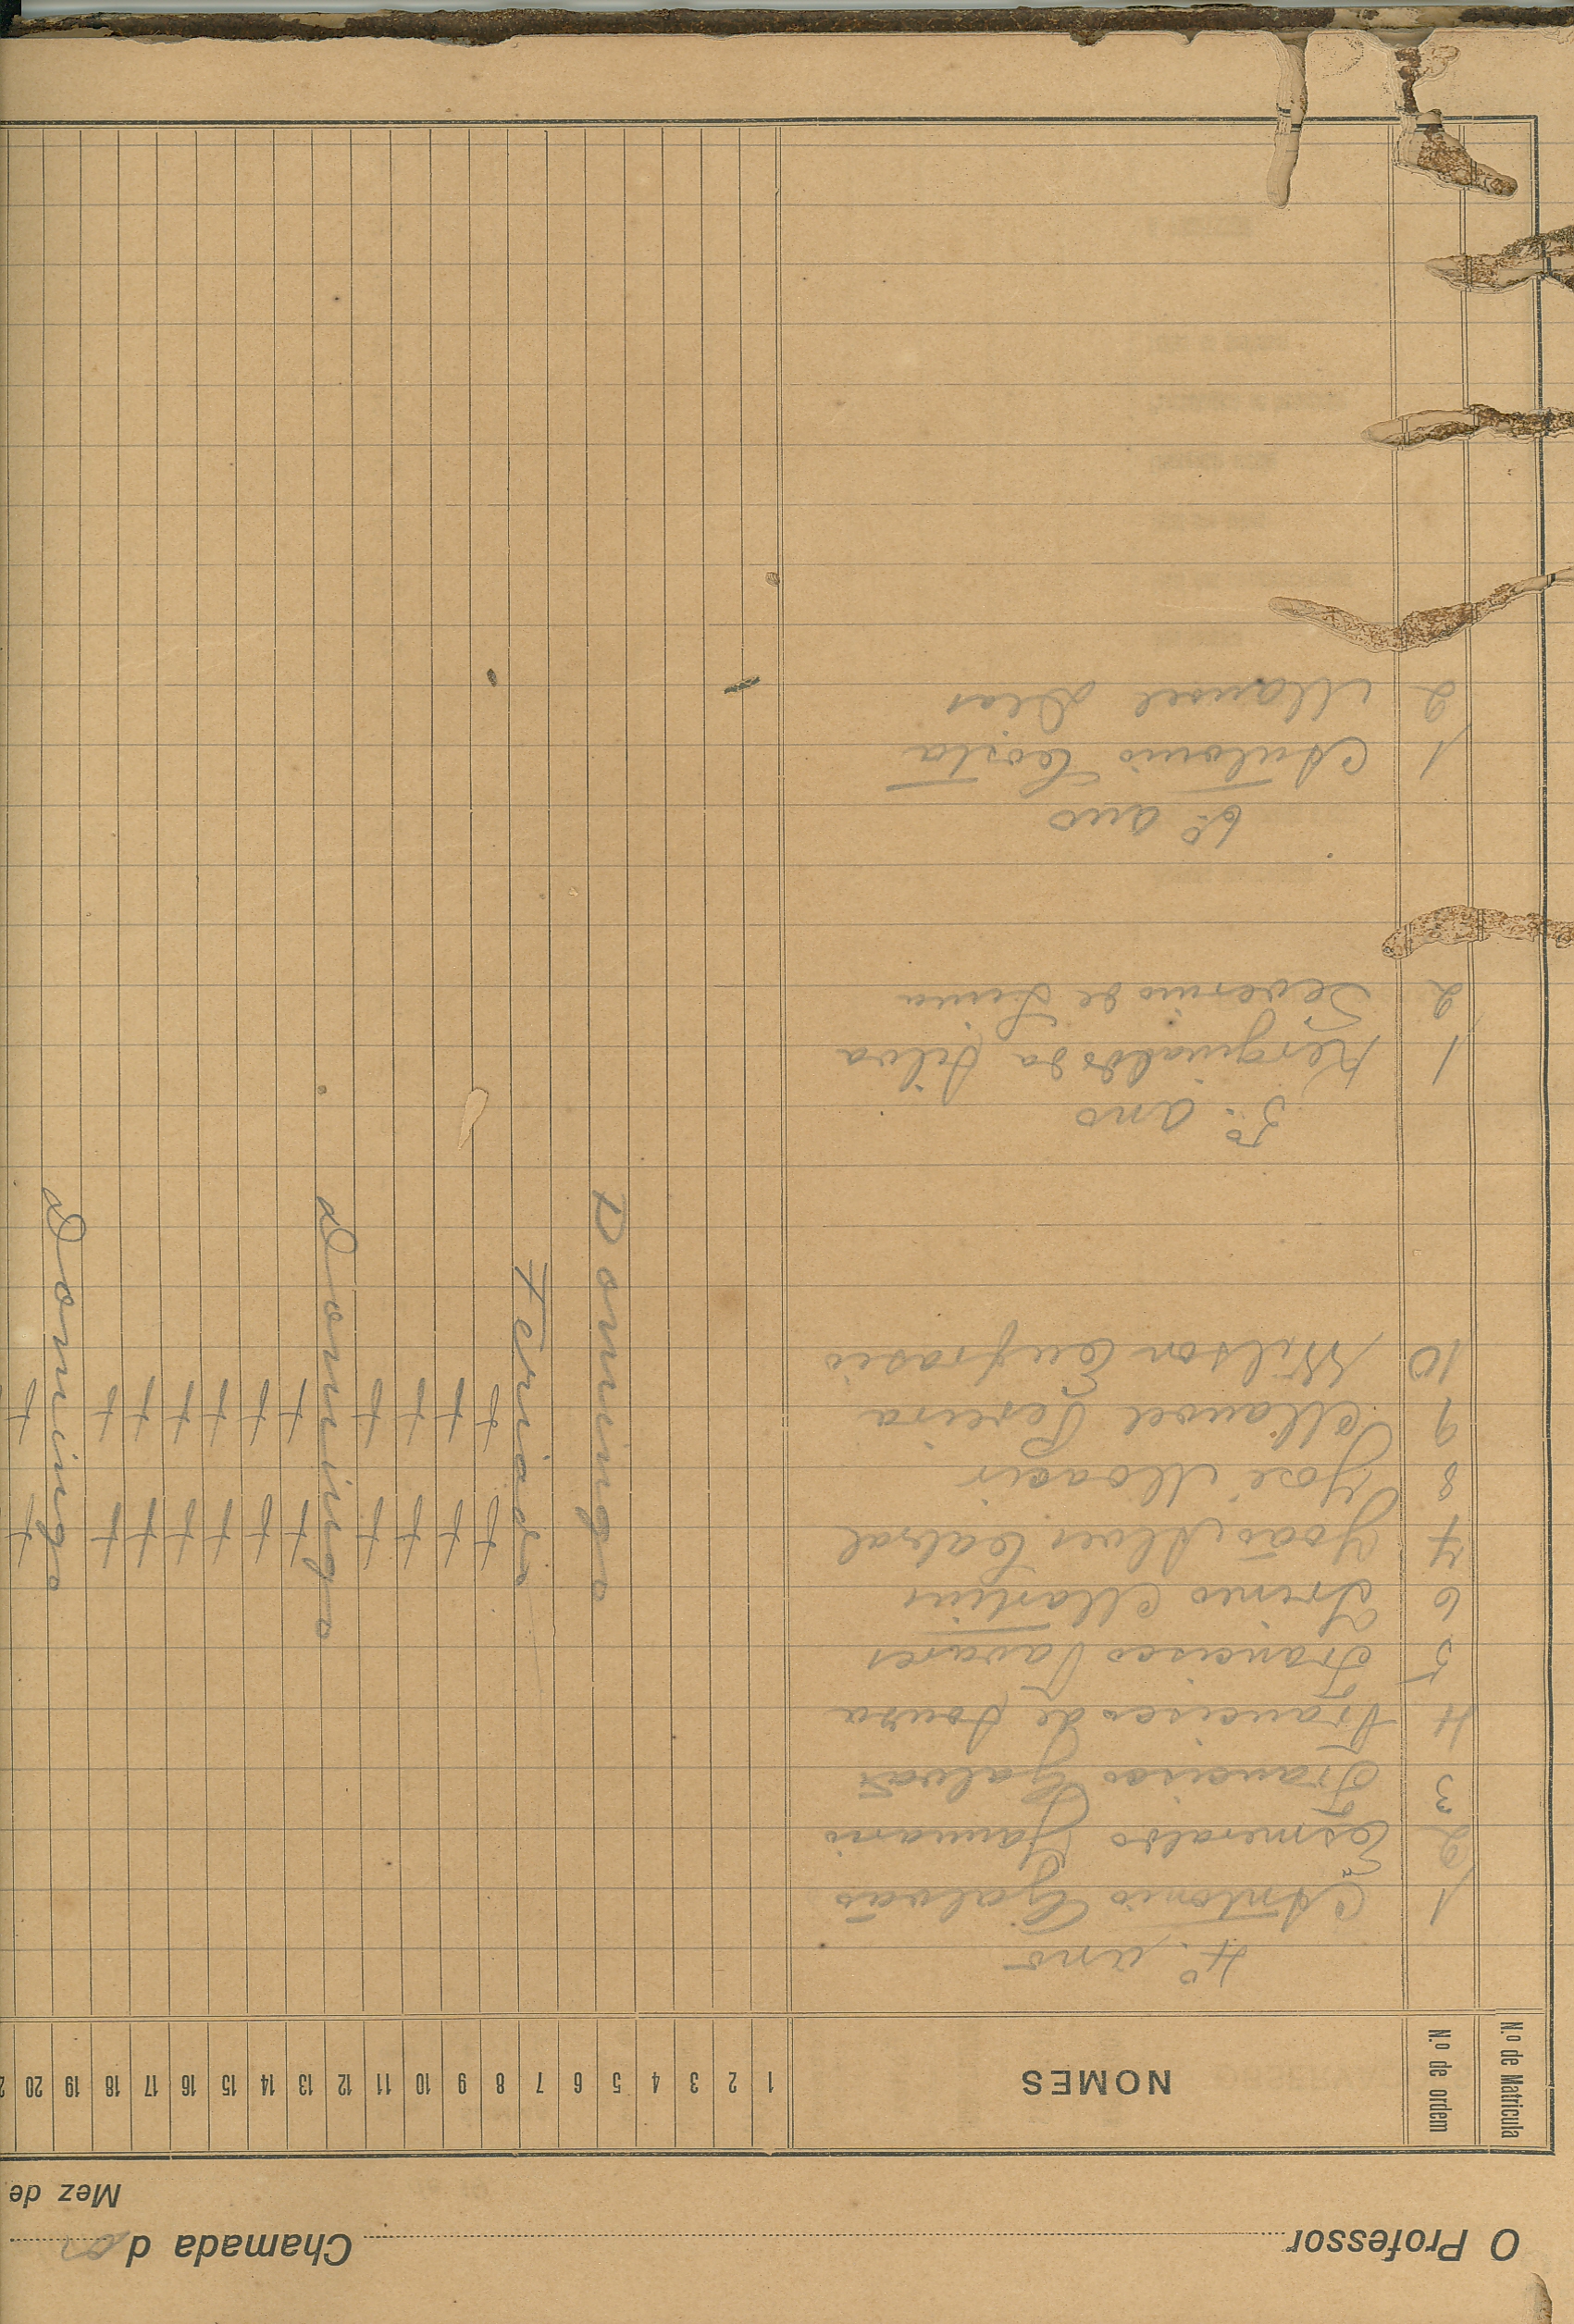 O Professor Chamada dos
Mez de
N.º de Matricula N.º de ordem NOMES 1 2 3 4 5 6 7 8 9 10 11 12 13 14 15 16 17 18 19 20
4º ano
1 Antonio Galvão
2 Esmeraldo Januario
3 Francisco Galvão
4 Francisco de Souza
5 Francisco Tavares
6 Irineo Martins
7 João Alves Cabral
8 José Moacir
9 Manoel Pereira
10 Wilson Eufrasio
Domingo
Feriado
Domingo
Domingo
5º ano
1 Kerginaldo da Silva
2 Severino de Lima
6º ano
1 Antonio Costa
2 Manoel Dias